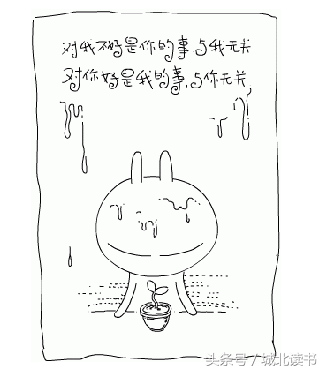 对我不好是你的事 与我无关
对你好是我的事,与你无关,
头条号/城北读书